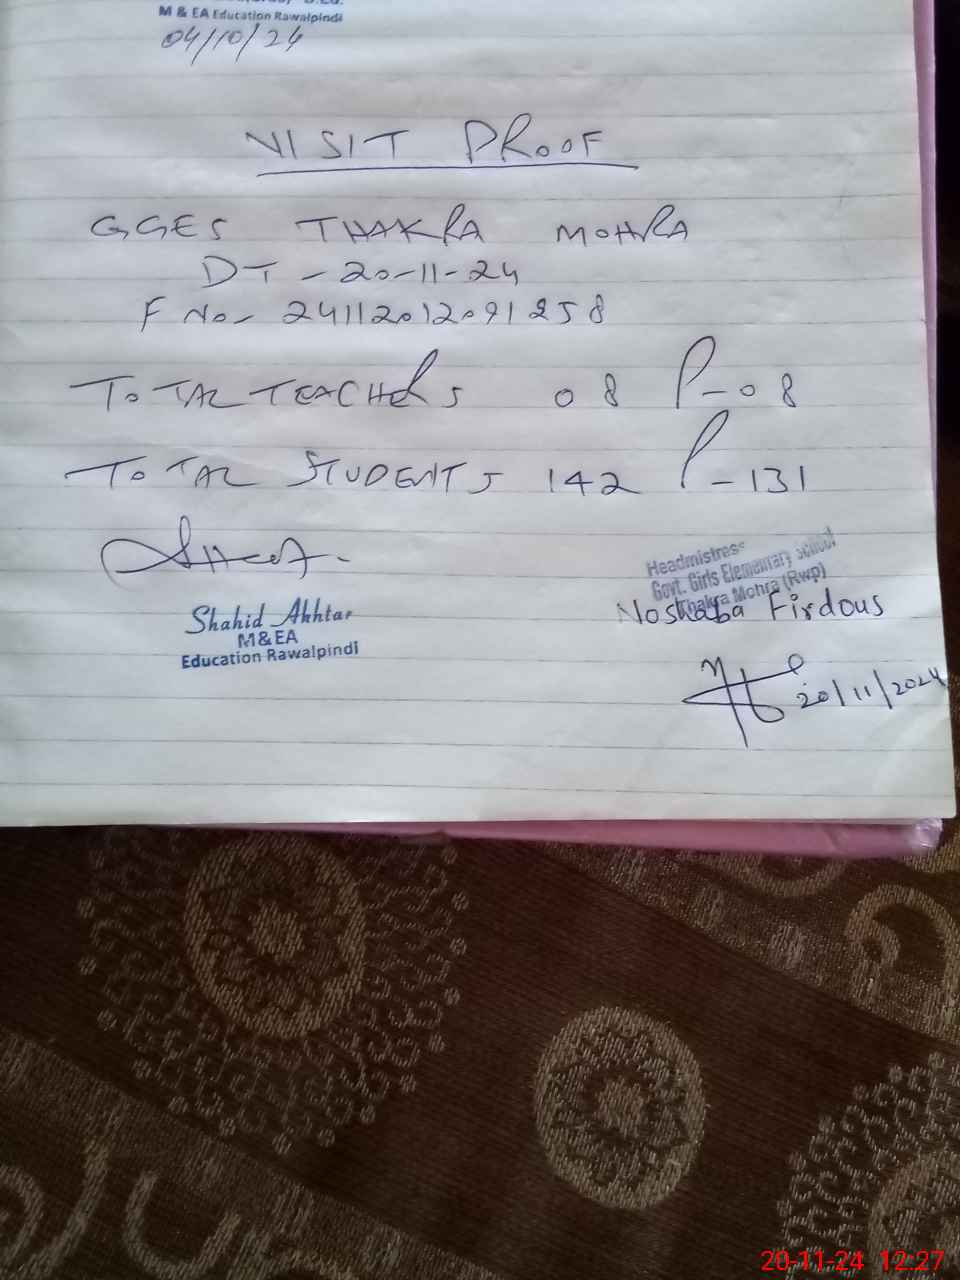 M & EA Education Rawalpindi
04/10/24
VISIT PROOF
GGES THAKRA MOHRA
DT - 20-11-24
F No- 24112012091258
TOTAL TEACHERS 08 P-08
TOTAL STUDENTS 142 P-131
Shahid Akhtar
M&EA
Education Rawalpindi
Headmistress
Govt. Girls Elementary School
Thakra Mohra (Rwp)
Noshaba Firdous
20/11/2024
20-11-24 12:27